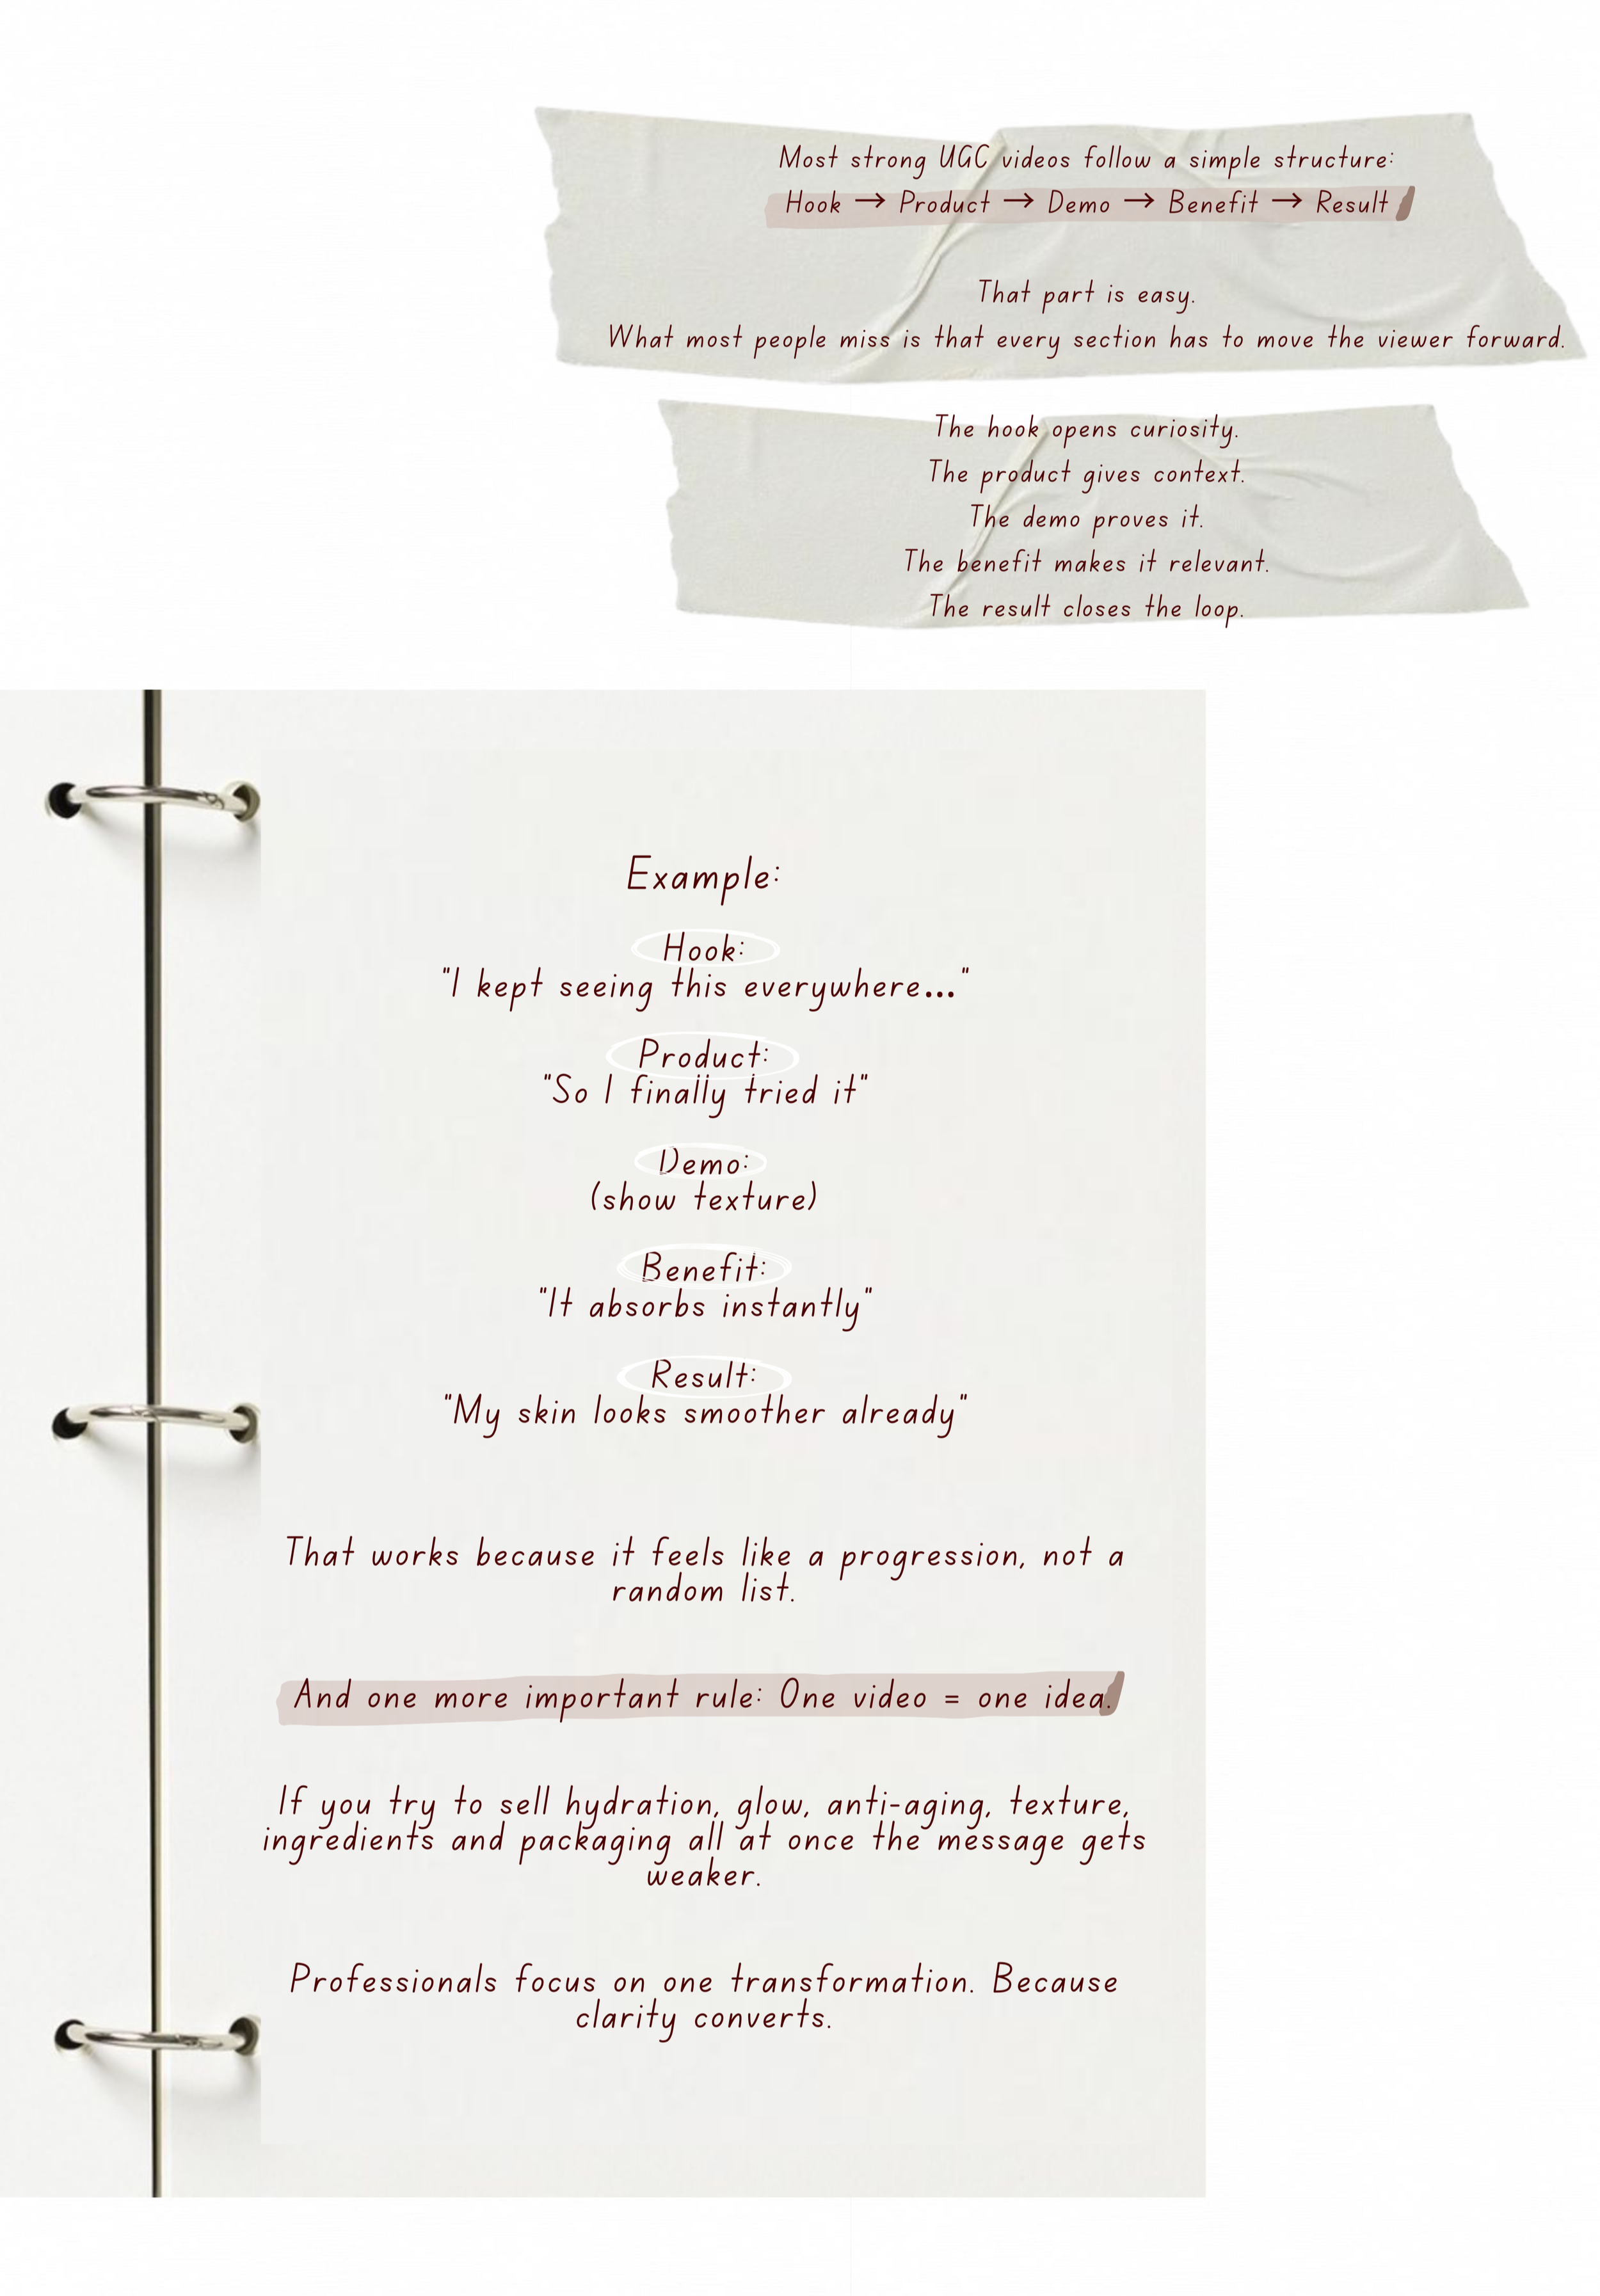 Most strong UGC videos follow a simple structure:
Hook → Product → Demo → Benefit → Result
That part is easy.
What most people miss is that every section has to move the viewer forward.
The hook opens curiosity.
The product gives context.
The demo proves it.
The benefit makes it relevant.
The result closes the loop.
Example:
Hook:
"I kept seeing this everywhere..."
Product:
"So I finally tried it"
Demo:
(show texture)
Benefit:
"It absorbs instantly"
Result:
"My skin looks smoother already"
That works because it feels like a progression, not a
random list.
And one more important rule: One video = one idea.
If you try to sell hydration, glow, anti-aging, texture,
ingredients and packaging all at once the message gets
weaker.
Professionals focus on one transformation. Because
clarity converts.